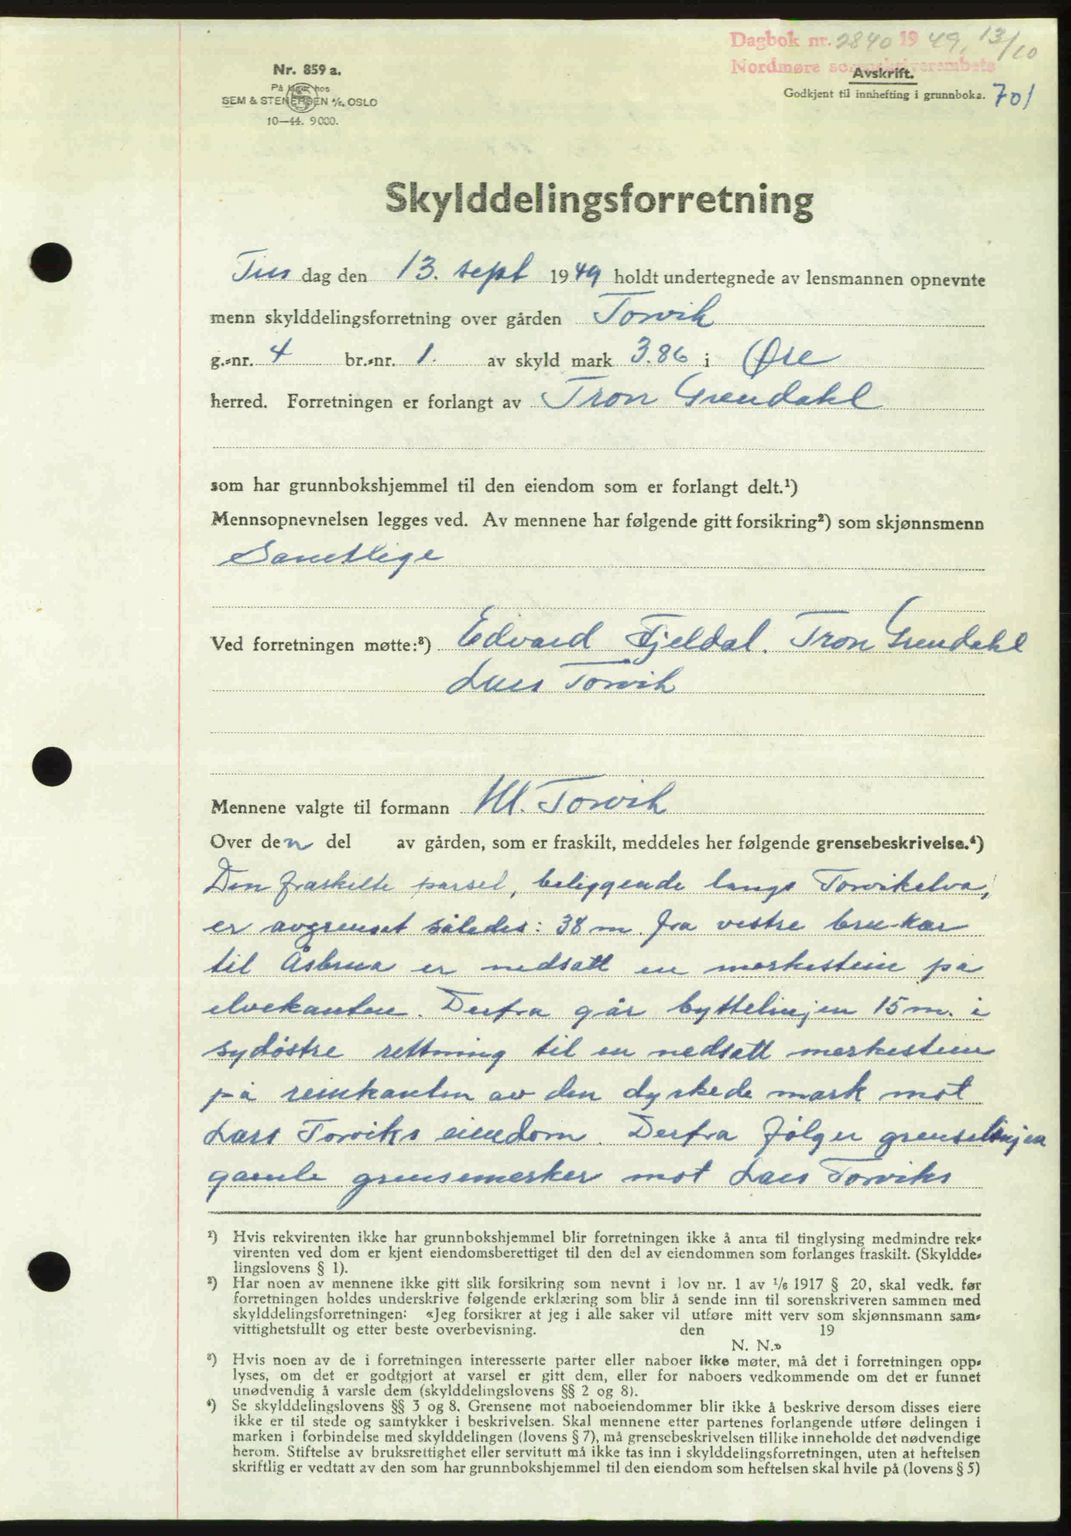 Dagbok nr. 2840 1949, 13/10
Nordmøre sorenskriverembete
Avskrift.
Godkjent til innhefting i grunnboka. 701
Nr. 859 a.
På lager hos
SEM & STENERSEN A/S, OSLO
10—44. 9000.
Skylddelingsforretning
Tirs dag den 13. sept 1949 holdt undertegnede av lensmannen opnevnte
menn skylddelingsforretning over gården Torvik
g.-nr. 4 br.-nr. 1. av skyld mark 3.86 i Øre
herred. Forretningen er forlangt av Tron Grendahl
som har grunnbokshjemmel til den eiendom som er forlangt delt.¹)
Mennsopnevnelsen legges ved. Av mennene har følgende gitt forsikring²) som skjønnsmenn
Samtlige
Ved forretningen møtte:³) Edvard Fjeldal. Tron Grendahl
Lars Torvik
Mennene valgte til formann M. Torvik
Over den del av gården, som er fraskilt, meddeles her følgende grensebeskrivelse.⁴)
Den fraskilte parsel, beliggende langs Torvikelva,
er avgrenset således: 38 m. fra vestre bru-kar
til Åsbrua er nedsatt en merkestein på
elvekanten. Derfra går byttelinjen 15 m. i
sydøstre rettning til en nedsatt merkestein
på reinkanten av den dyrkede mark mot
Lars Torviks eiendom. Derfra følger grenselinjen
gamle grensemerker mot Lars Torviks
¹) Hvis rekvirenten ikke har grunnbokshjemmel blir forretningen ikke å anta til tinglysing medmindre rek-
virenten ved dom er kjent eiendomsberettiget til den del av eiendommen som forlanges fraskilt. (Skyldde-
lingslovens § 1).
²) Har noen av mennene ikke gitt slik forsikring som nevnt i lov nr. 1 av ¹/₆ 1917 § 20, skal vedk. før
forretningen holdes underskrive følgende erklæring som blir å sende inn til sorenskriveren sammen med
skylddelingsforretningen: «Jeg forsikrer at jeg i alle saker vil utføre mitt verv som skjønnsmann sam-
vittighetsfullt og etter beste overbevisning. den 19
N. N.»
³) Hvis noen av de i forretningen interesserte parter eller naboer ikke møter, må det i forretningen opp-
lyses, om det er godtgjort at varsel er gitt dem, eller for naboers vedkommende om det er funnet
unødvendig å varsle dem (skylddelingslovens §§ 2 og 8).
⁴) Se skylddelingslovens §§ 3 og 8. Grensene mot naboeiendommer blir ikke å beskrive dersom disses eiere
ikke er til stede og samtykker i beskrivelsen. Skal mennene etter partenes forlangende utføre delingen i
marken i forbindelse med skylddelingen (lovens § 7), må grensebeskrivelsen tillike inneholde det nødvendige
herom. Stiftelse av bruksrettighet eller servitutt må ikke tas inn i skylddelingsforretningen, uten at heftelsen
skriftlig er vedtatt av den som har grunnbokshjemmel til den eiendom som heftelsen skal hvile på (lovens § 5)